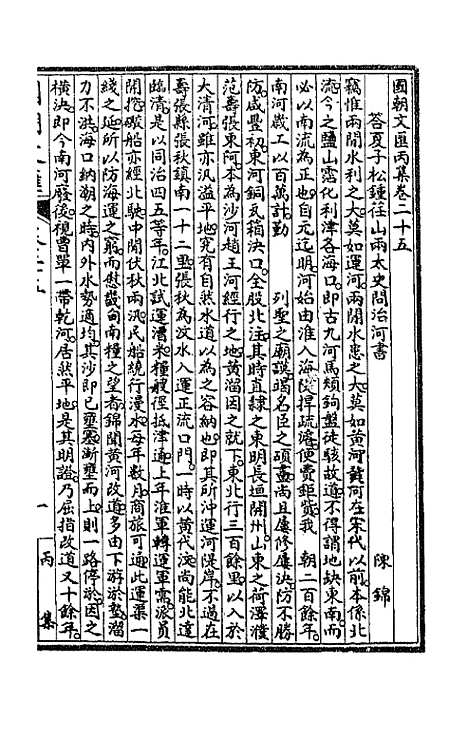 國朝文匯丙集卷二十五
答夏子松鍾任山兩太史問治河書　陳錦
竊惟兩閒水利之大莫如運河兩閒水患之大莫如黃河黃河在宋代以前本係北
流今之鹽山霑化利津各海口即古九河馬頰鉤盤徒駭故道不得謂地缺東南而
必以南流為正也自元迄明河始由淮入海隄捍疏瀹便費鉅貲我　朝二百餘年
南河歲工以百萬計勤　列聖之廟謨竭名臣之碩畫尚且屢修屢決防不勝
防咸豐初東河銅瓦箱決口全股北注其時直隸之東明長垣開州山東之荷澤濮
范壽張東阿本為沙河趙王河經行之地黃溜因之就下東北行三百餘里以入於
大清河雖亦汎溢平地究有自然水道以為之容納也即其所沖運河隄岸不過在
壽張縣張秋鎮南一十二里張秋為汶水入運正流口門一時以黃代汶尚能北達
臨清是以同治四五等年江北試運漕米糧艘徑抵津通上年淮軍轉運軍需派員
開挖礮船亦經北駛中閒伏秋兩汎民船繞行漫水每年數月商旅可通此運渠一
綫之延所以防海運之窮而慰畿甸南糧之望者錦聞黃河改道多由下游淤墊溜
力不洪海口納潮之時內外水勢適均其沙即已壅塞漸壅而上則一路停淤因之
橫決即今南河廢後視曹單一帶乾河居然平地是其明證乃屈指改道又十餘年
一　丙集